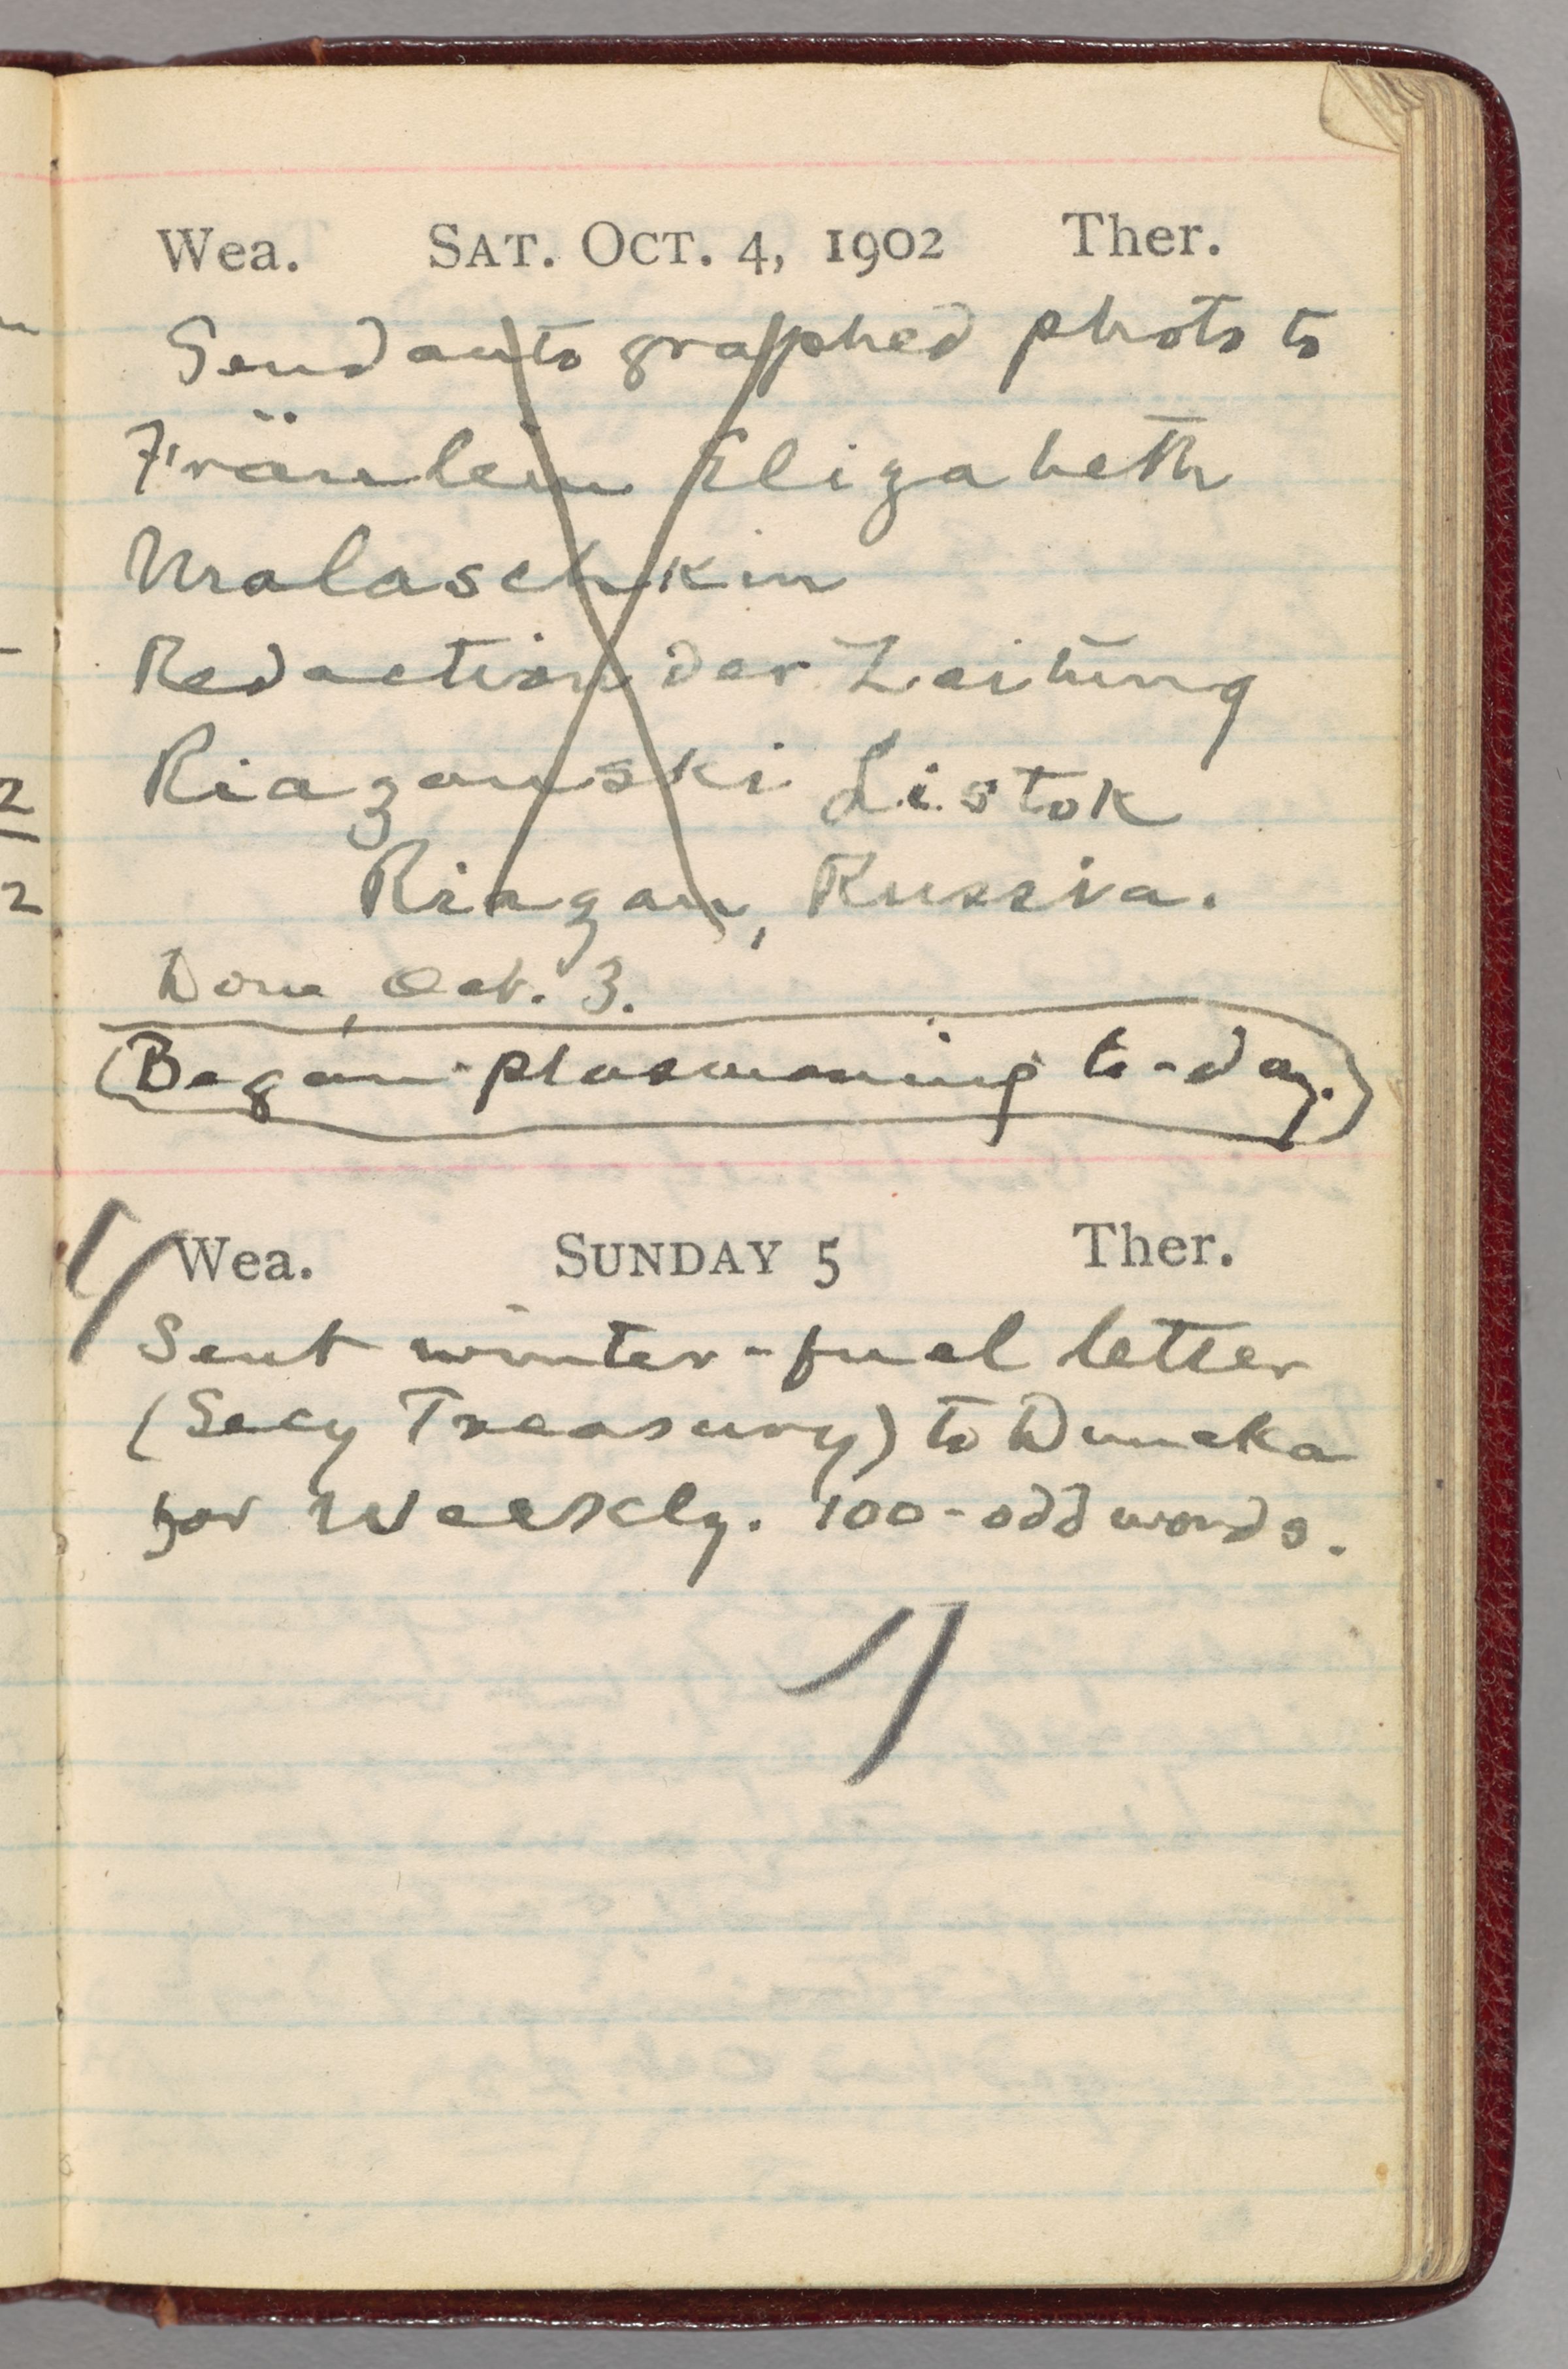 Wea. SAT. OCT. 4, 1902 Ther.
Send autographed photo to
Fräulein Elizabeth
Malaschkin
Redaction der Zeitung
Riazanski Listok
Riazan, Russia.
Done, Oct. 3.
Began plasmoning to-day.
Wea. SUNDAY 5 Ther.
Sent winter-fuel letter
(Secy Treasury) to Duneka
for Weekly. 100-odd words.